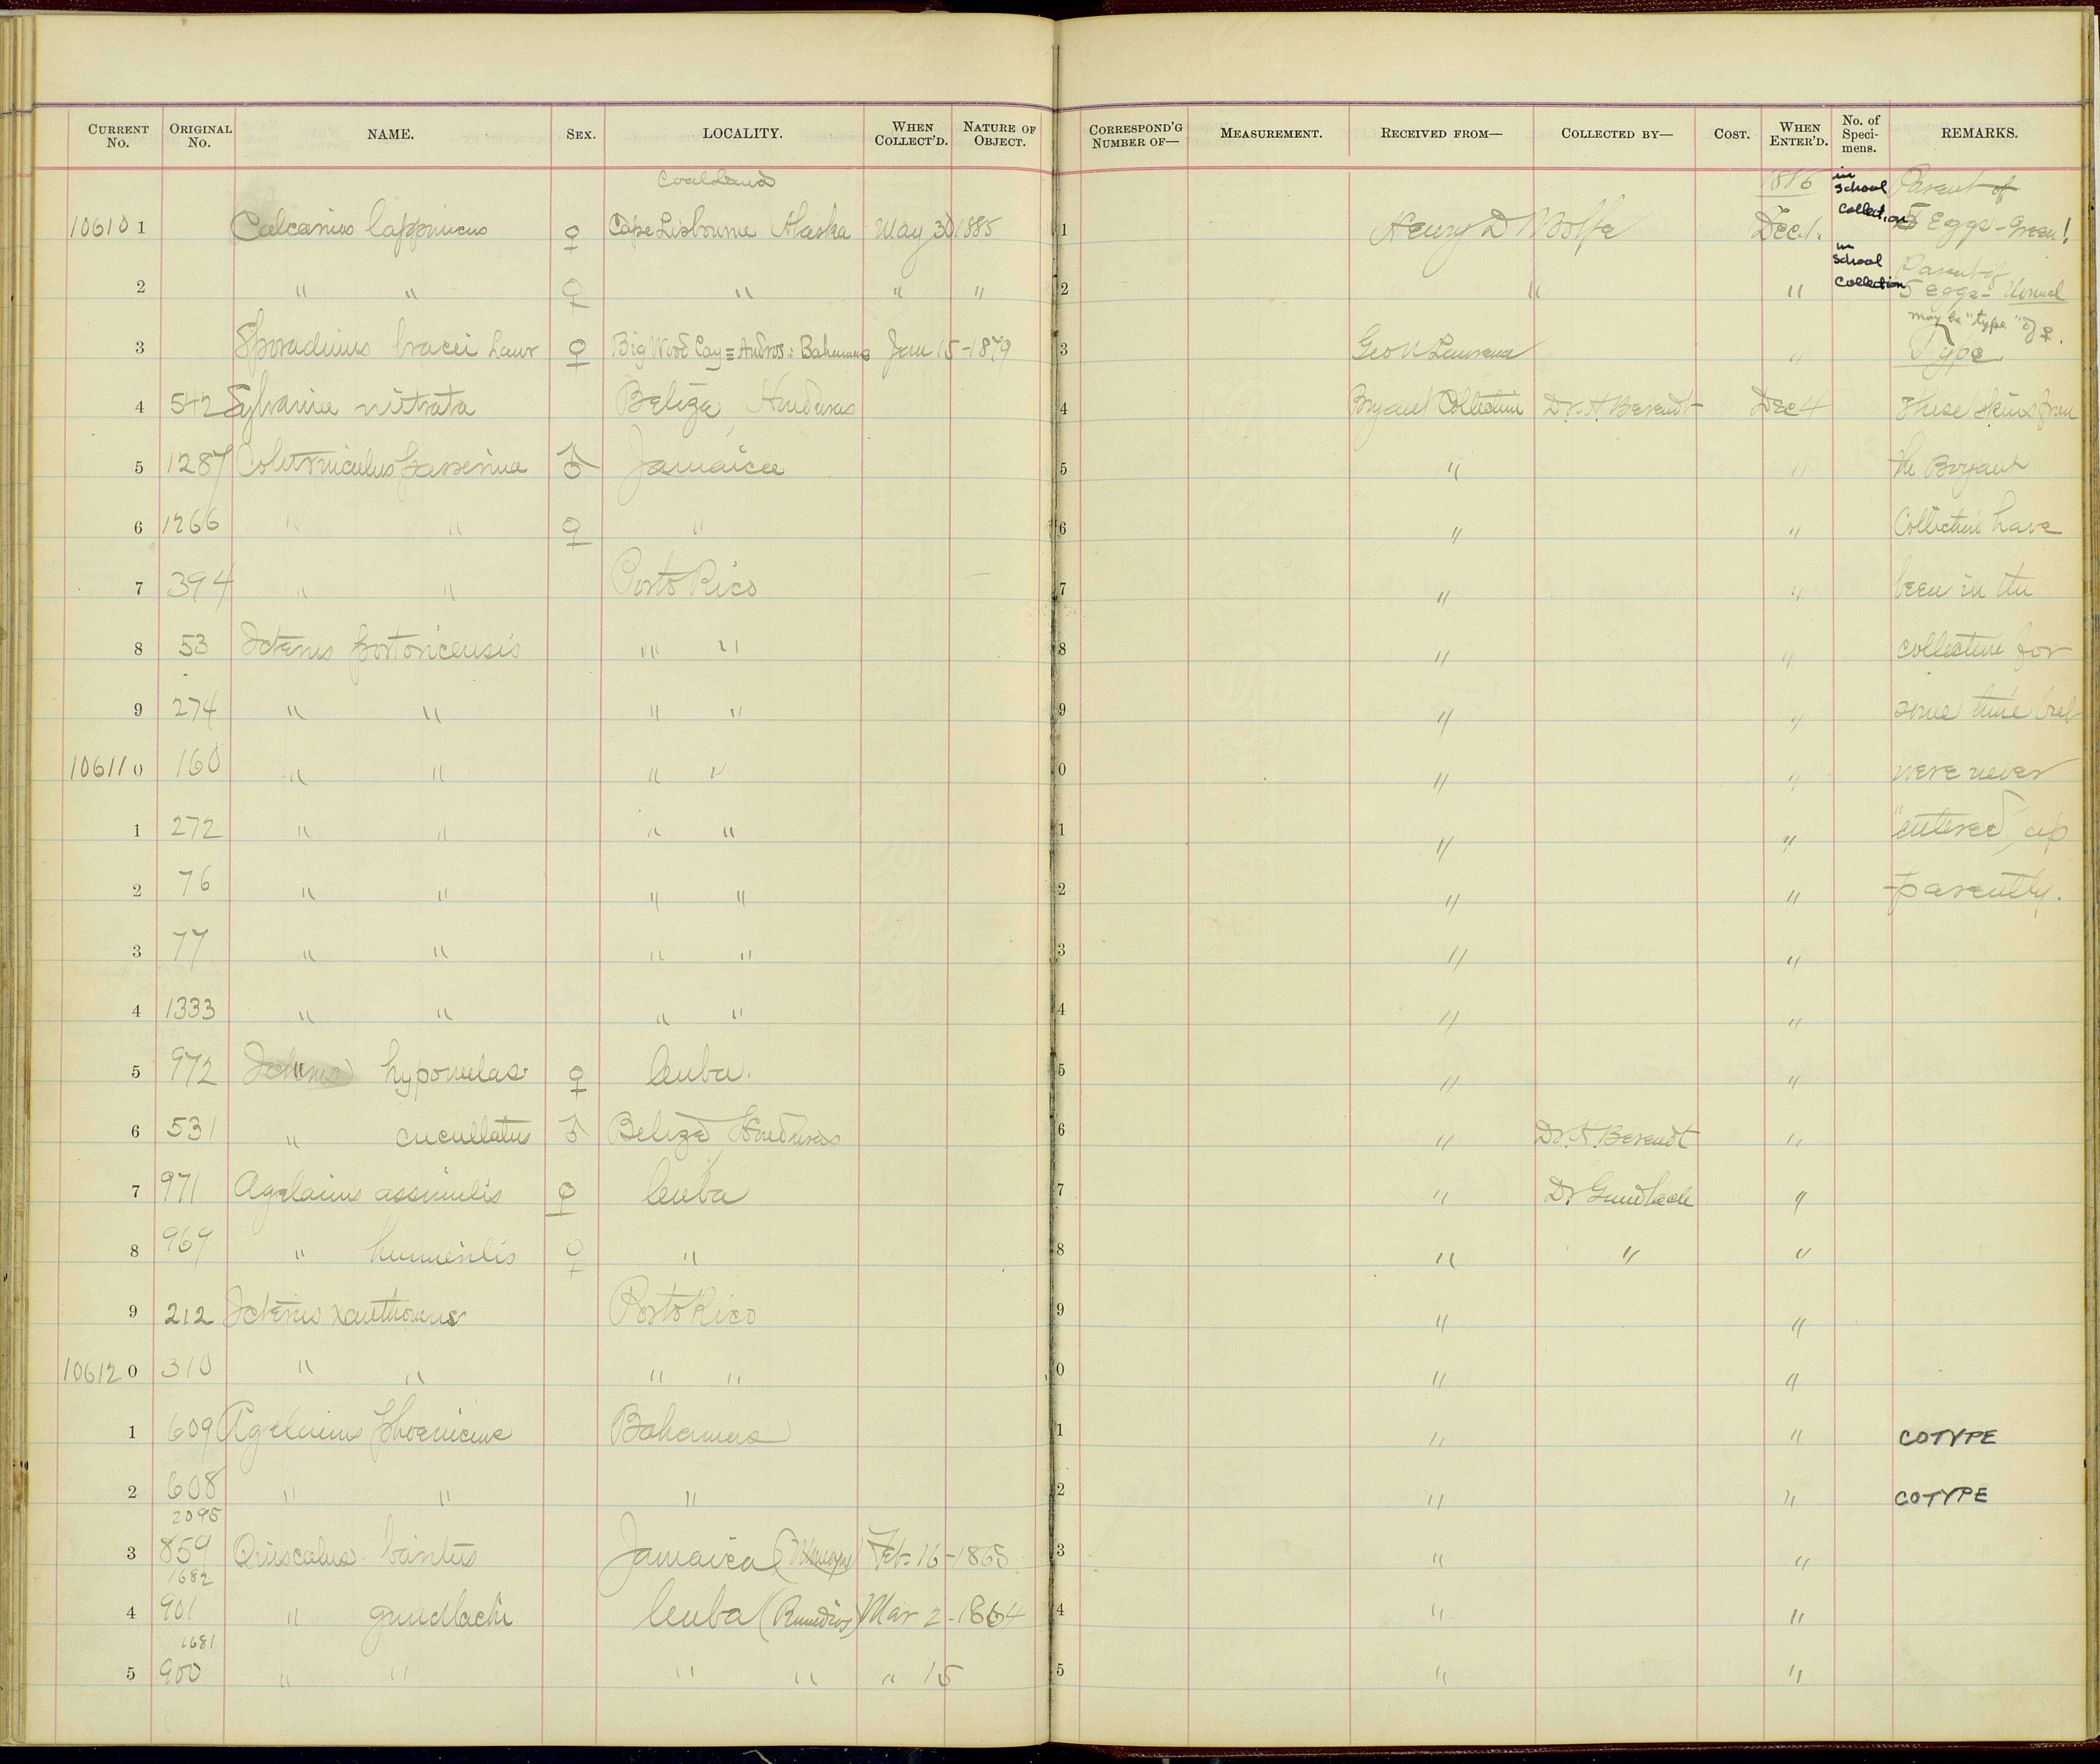 CURRENT No. ORIGINAL No. NAME. SEX. LOCALITY. WHEN COLLECT'D. NATURE OF OBJECT. CORRESPOND'G NUMBER OF— MEASUREMENT. RECEIVED FROM— COLLECTED BY— COST. WHEN ENTER'D. No. of Speci- mens. REMARKS.
Coal Land 1886 in School Collection Parent of
10610 1 Calcarius lapponicus ♀ Cape Lisbourne Alaska May 30 1885 1 Henry D Wolfe Dec. 1. 5 Eggs - Green!
in School Collection Parent of
2 " " ♀ " " " 2 " " 5 eggs - Normal
may be "type" of ♀.
3 Sporadinus bracei Lawr ♀ Big Wood Cay = Andros: Bahamas Jan 15 - 1879 3 Geo N Lawrence " Type
4 542 Sylvania mitrata Belize, Honduras 4 Bryant Collection Dr. H. Berendt Dec 4 These skins from
5 1287 Coturniculus passerina ♂ Jamaica 5 " " the Bryant
6 1266 " " ♀ " 6 " " Collection have
7 394 " " Porto Rico 7 " " been in the
8 53 Icterus portoricensis " " 8 " " collection for
9 274 " " " " 9 " " some time but
10611 0 160 " " " " 0 " " were never
1 272 " " " " 1 " " "entered", ap
2 76 " " " " 2 " " -parently.
3 77 " " " " 3 " "
4 1333 " " " " 4 " "
5 972 Icterus " hypomelas ♀ Cuba. 5 " "
6 531 " cucullatus ♂ Belize, Honduras 6 " Dr. H. Berendt "
7 971 Agelaius assimilis ♀ Cuba 7 " Dr Gundlach "
8 969 " humeralis ♀ " 8 " " "
9 212 Icterus xanthomus Porto Rico 9 " "
10612 0 310 " " " " 0 " "
1 609 Agelaius phoeniceus Bahamas 1 " " COTYPE
2 608 " " " 2 " " COTYPE
2095
3 859 Quiscalus baritus Jamaica Feb - 16 - 1865 3 " "
1682
4 901 " gundlachi Cuba (Remedios) Mar 2 - 1864 4 " "
1681
5 900 " " " " " 15 5 " "